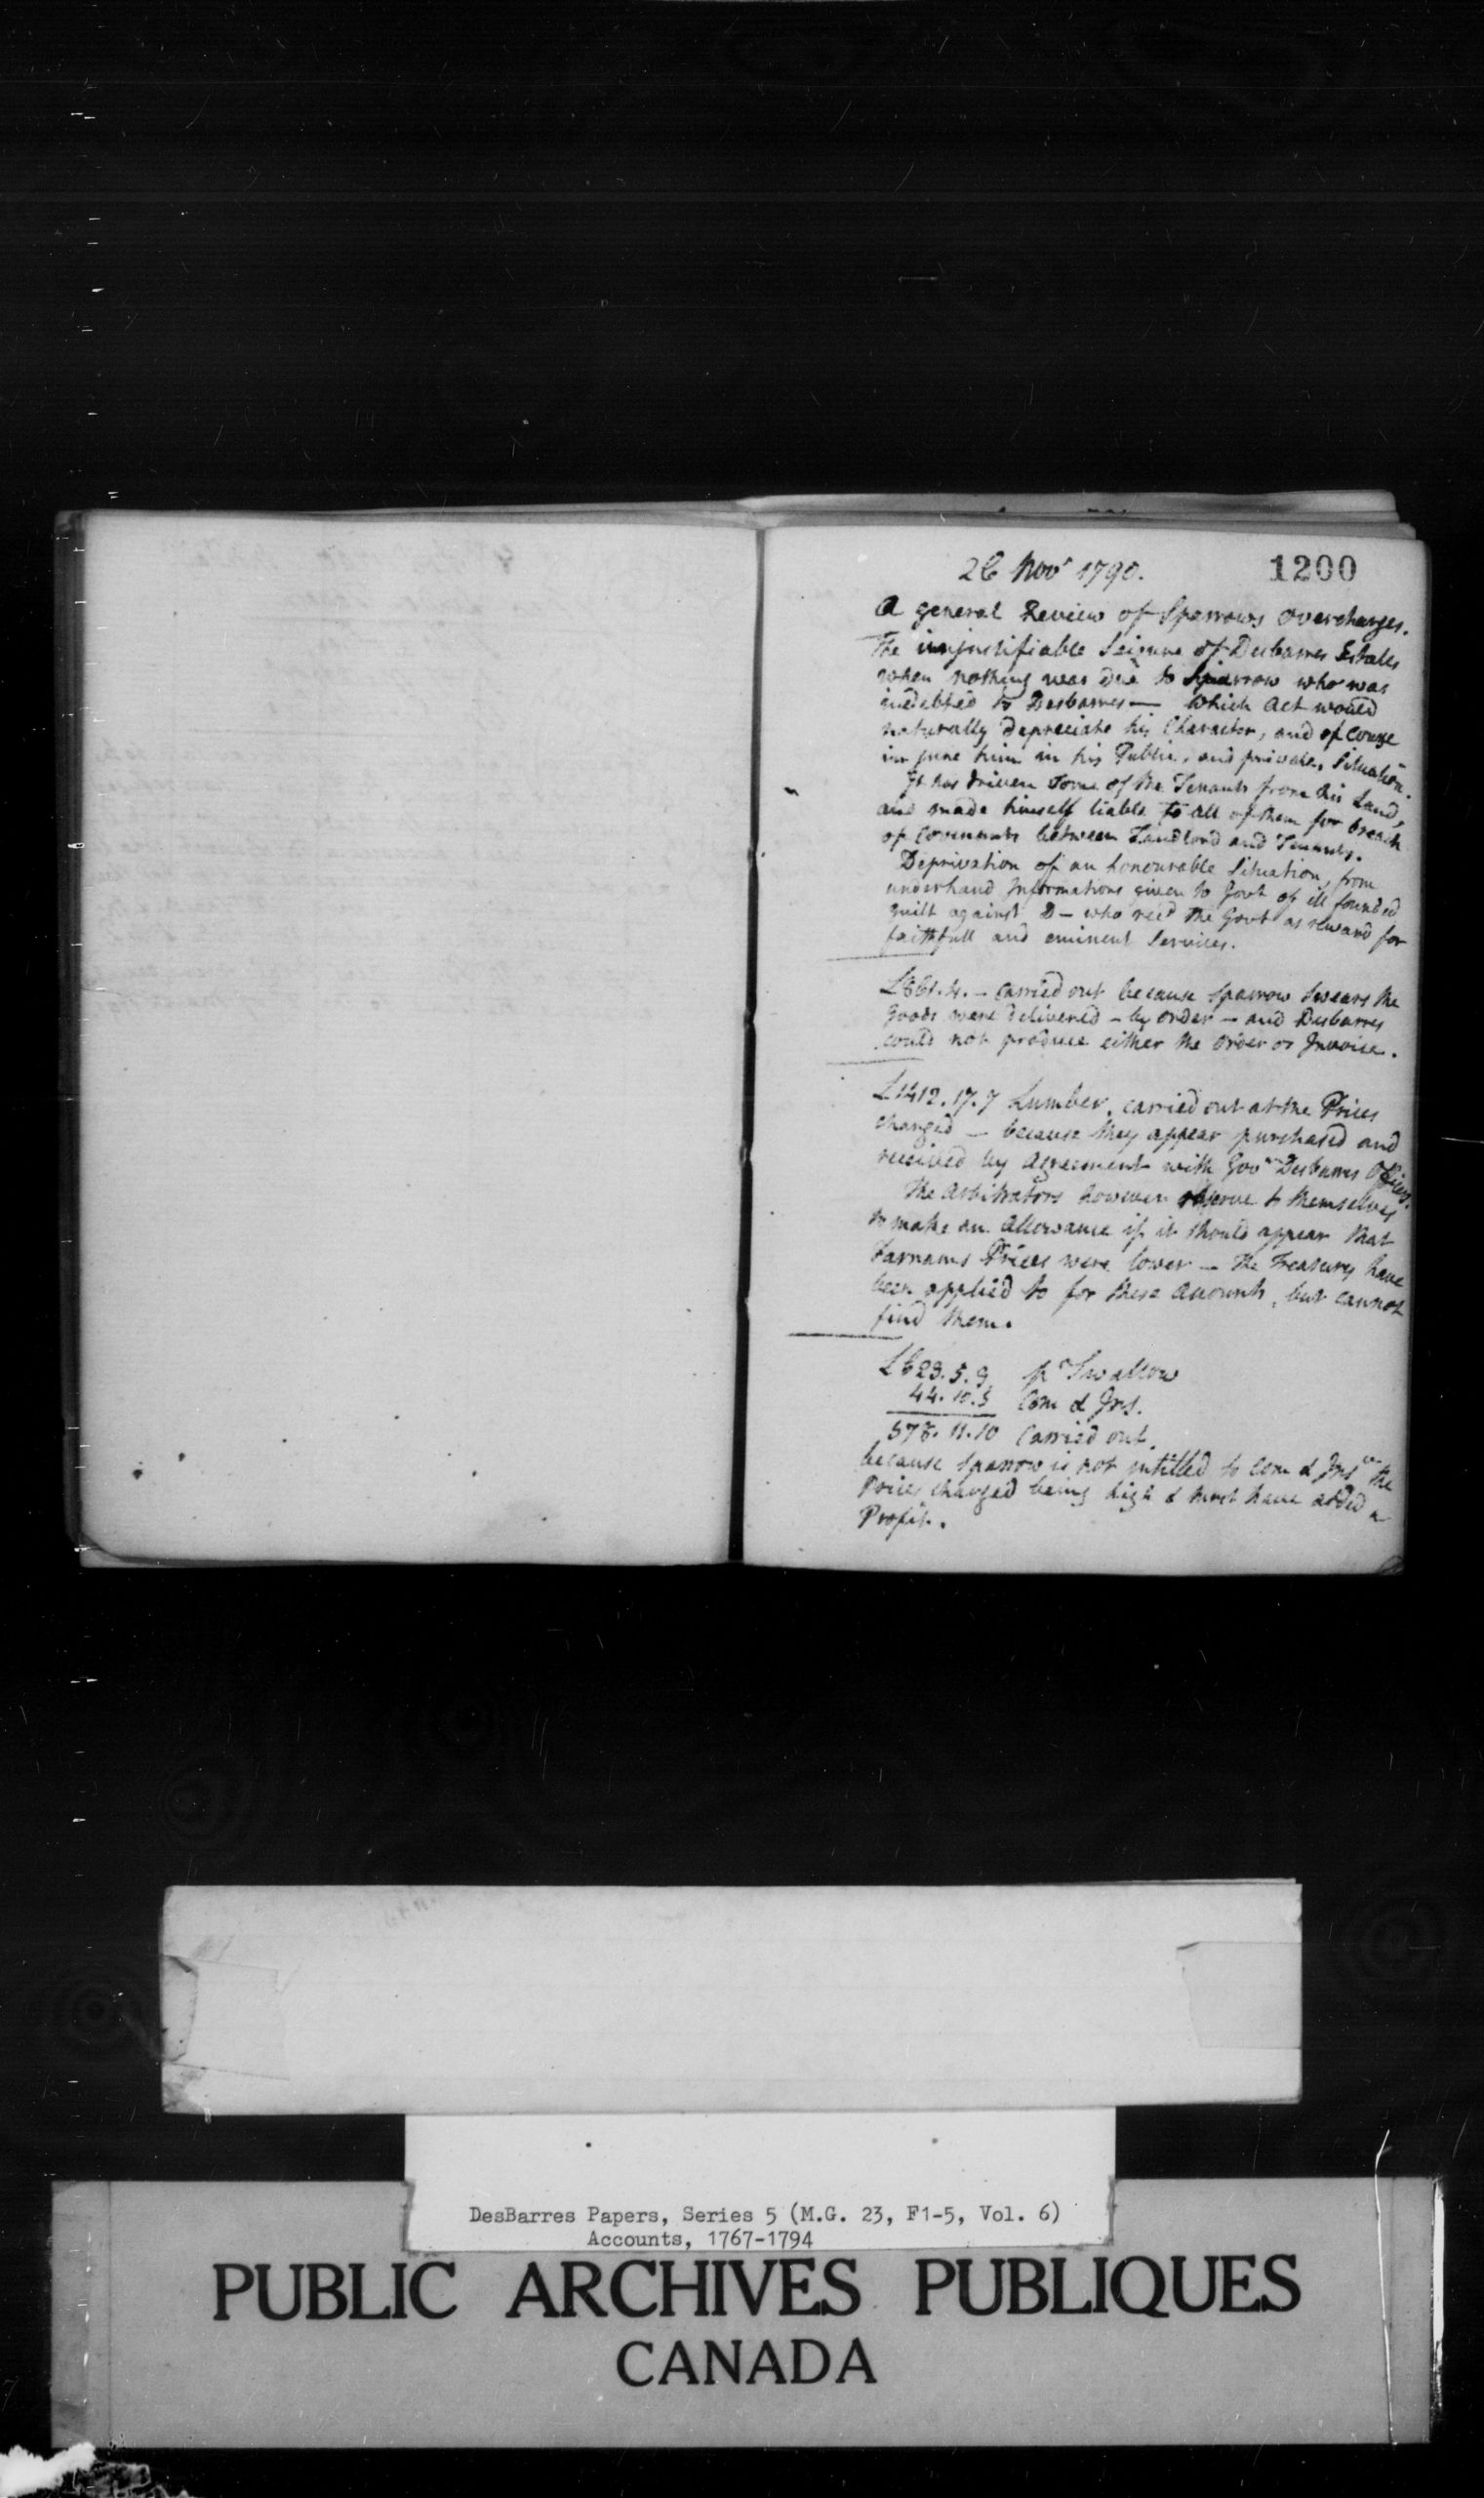 26 Novr 1790.
1200
A general Review of Sparrows overcharges.
The unjustifiable Seizure of Desbarres Estates
when nothing was due to Sparrow who was
indebted to Desbarres — which Act would
naturally depreciate his Character, and of Course
injure him in his Public, and private, Situation.
It has driven some of the Tenants from his Land,
and made himself liable to all of them for breach
of Covenants between Landlord and Tenants.
Deprivation of an honourable Situation, from
underhand Informations given to Govt of ill founded
guilt against D — who recd the Govt as reward for
faithfull and eminent Services.
£661.4. — carried out because Sparrow Swears the
Goods were delivered — by order — and Desbarres
could not produce either the order or Invoice.
£1412.17.7 Lumber, carried out at the Prices
charged — because they appear purchased and
received by Agreement with Govr Desbarres Officers.
The Arbitrators however reserve to themselves
to make an Allowance if it should appear that
Farnams Prices were lower — The Treasury have
been applied to for these Accounts, but cannot
find them.
£623.5.9 pr Swallow
44.10.3 Com & Ins.
578.11.10 Carried out.
because Sparrow is not intitled to Com & Ins the
Prices charged being high & must have added a
Profit.
DesBarres Papers, Series 5 (M.G. 23, F1-5, Vol. 6)
Accounts, 1767-1794
PUBLIC ARCHIVES PUBLIQUES
CANADA